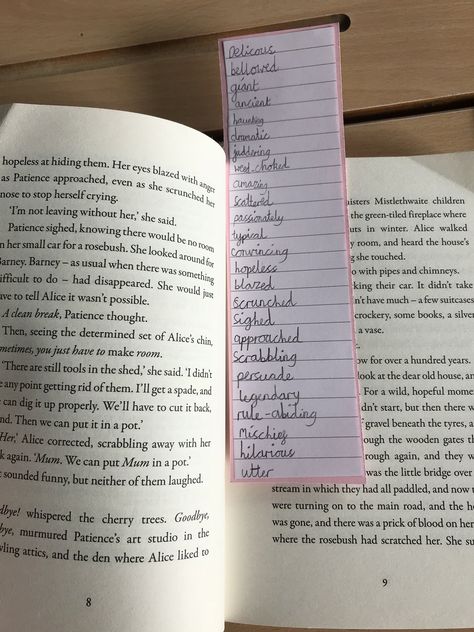 hopeless at hiding them. Her eyes blazed with anger
as Patience approached, even as she scrunched her
nose to stop herself crying.
'I'm not leaving without her,' she said.
Patience sighed, knowing there would be no room
in her small car for a rosebush. She looked around for
Barney. Barney – as usual when there was something
difficult to do – had disappeared. She would just
have to tell Alice it wasn't possible.
A clean break, Patience thought.
Then, seeing the determined set of Alice's chin,
sometimes, you just have to make room.
'There are still tools in the shed,' she said. 'I didn't
see any point getting rid of them. I'll get a spade, and
can dig it up properly. We'll have to cut it back,
and. Then we can put it in a pot.'
Her,' Alice corrected, scrabbling away with her
k again. 'Mum. We can put Mum in a pot.'
t sounded funny, but neither of them laughed.
dbye! whispered the cherry trees. Goodbye,
bye, murmured Patience's art studio in the
wling attics, and the den where Alice liked to
8
Delicous
bellowed
giant
ancient
haunting
dramatic
juddering
weed-choked
amazing
scatterd
passionately
typical
convincing
hopeless
blazed
Scrunched
Sighed
approached
Scrabbling
persuade
legendary
rule-abiding
Mischief
hilarious
utter
isters Mistlethwaite children
the green-tiled fireplace where
uts in winter. Alice walked
y room, and heard the house's
g she touched.
o with pipes and chimneys.
king their car. It didn't take
n't have much – a few suitcases
crockery, some books, a silver
a vase.
ow for over a hundred years.
look at the dear old house, and
For a wild, hopeful moment
dn't start, but then there was
gravel beneath the tyres, a
ough the wooden gates th
rough again, and they w
was the little bridge over
stream in which they had all paddled, and now
were turning on to the main road, and the ho
was gone, and there was a prick of blood on her
where the rosebush had scratched her. She su
9